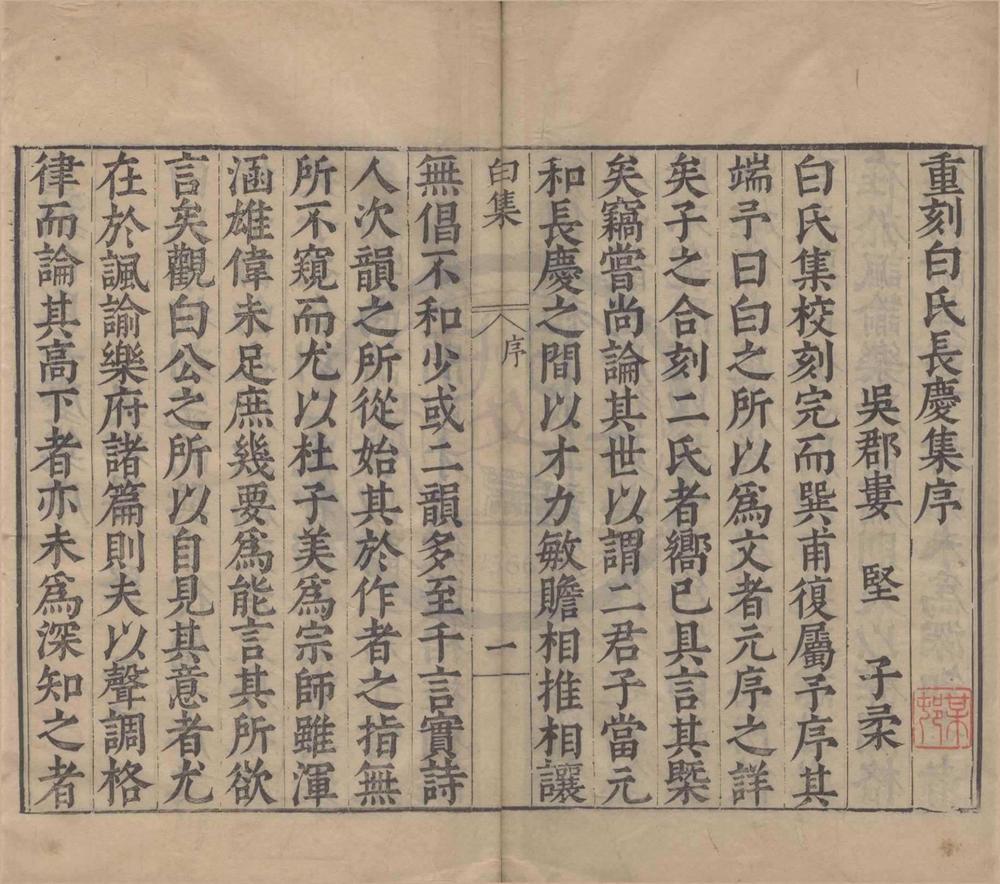 重刻白氏長慶集序
吳郡婁堅子柔
白氏集校刻完而巽甫復屬予序其
端予曰白之所以爲文者元序之詳
矣子之合刻二氏者嚮已具言其槩
矣竊嘗尚論其世以謂二君子當元
和長慶之間以才力敏贍相推相讓
白集 序 一
無倡不和少或二韻多至千言實詩
人次韻之所從始其於作者之指無
所不窺而尤以杜子美爲宗師雖渾
涵雄偉未足庶幾要爲能言其所欲
言矣觀白公之所以自見其意者尤
在於諷諭樂府諸篇則夫以聲調格
律而論其高下者亦未爲深知之者